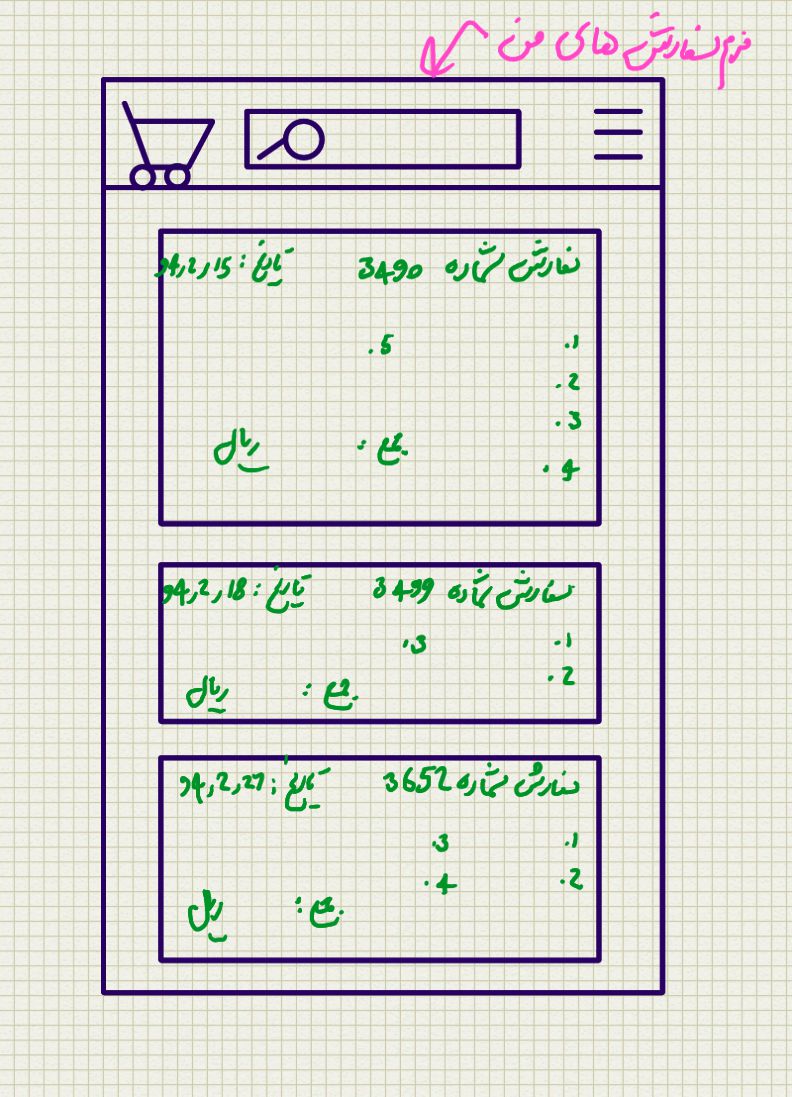 فرم سفارش های من
سفارش شماره 3490 تاریخ : 94,2,15
1. 5.
2.
3.
4. جمع : ریال
سفارش شماره 3499 تاریخ : 94,2,18
1. 3.
2.
جمع : ریال
سفارش شماره 3652 تاریخ : 94,2,27
1. 3.
2. 4.
جمع : ریال